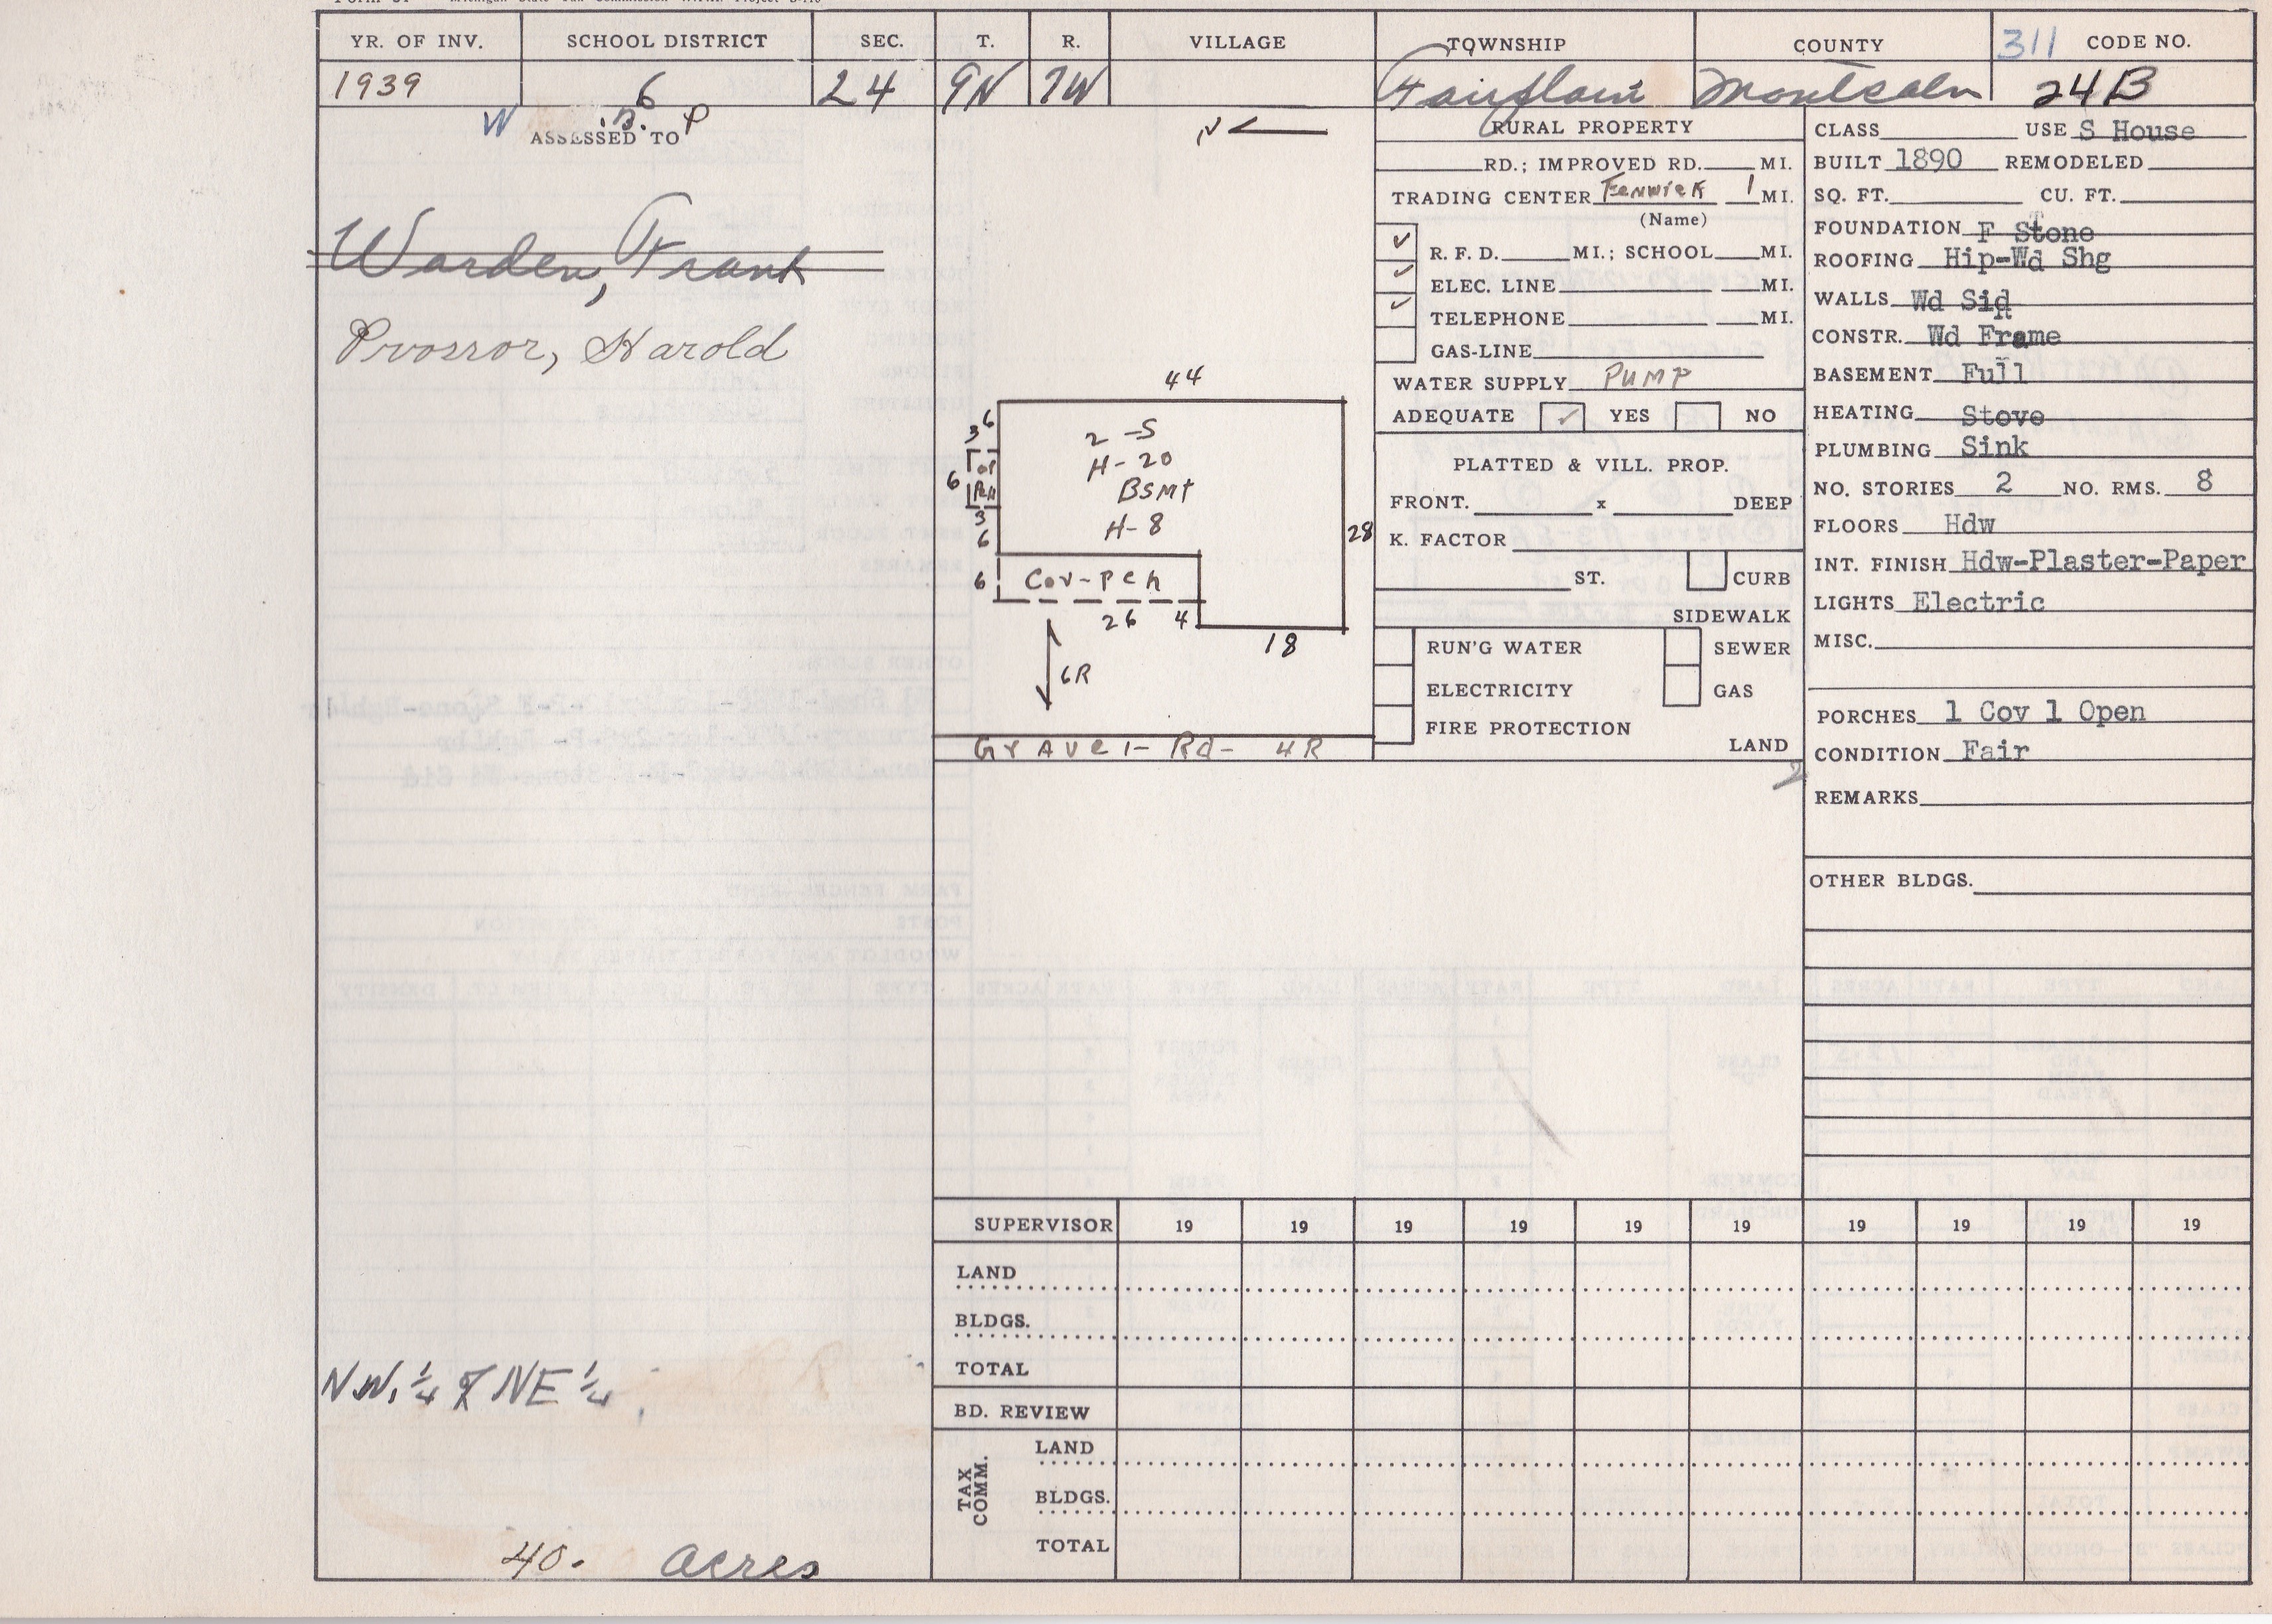 YR. OF INV. SCHOOL DISTRICT SEC. T. R. VILLAGE TOWNSHIP COUNTY 311 CODE NO.
1939 6 24 9N 7W Fairplain Montcalm 24B
W .B. P
ASSESSED TO
Warden, Frank
Prossor, Harold
N.W. 1/4 of NE 1/4
40. acres
N
44
3 6
6
OP
PCH
3
6
2-S
H-20
BSMT
H-8
28
6 Cov-pch
26 4
18
6R
Gravel-Rd- 4R
RURAL PROPERTY
RD.; IMPROVED RD. MI.
TRADING CENTER Fenwick 1 MI.
(Name)
✓ R. F. D. MI.; SCHOOL MI.
✓ ELEC. LINE MI.
✓ TELEPHONE MI.
GAS-LINE
WATER SUPPLY PUMP
ADEQUATE ✓ YES NO
PLATTED & VILL. PROP.
FRONT. x DEEP
K. FACTOR
ST. CURB
SIDEWALK
RUN'G WATER SEWER
ELECTRICITY GAS
FIRE PROTECTION
LAND
2
CLASS USE S House
BUILT 1890 REMODELED
SQ. FT. CU. FT.
FOUNDATION F Stone
ROOFING Hip-Wd Shg
WALLS Wd Sid
CONSTR. Wd Frame
BASEMENT Full
HEATING Stove
PLUMBING Sink
NO. STORIES 2 NO. RMS. 8
FLOORS Hdw
INT. FINISH Hdw-Plaster-Paper
LIGHTS Electric
MISC.
PORCHES 1 Cov 1 Open
CONDITION Fair
REMARKS
OTHER BLDGS.
SUPERVISOR 19 19 19 19 19 19 19 19 19 19
LAND
BLDGS.
TOTAL
BD. REVIEW
TAX COMM.
LAND
BLDGS.
TOTAL